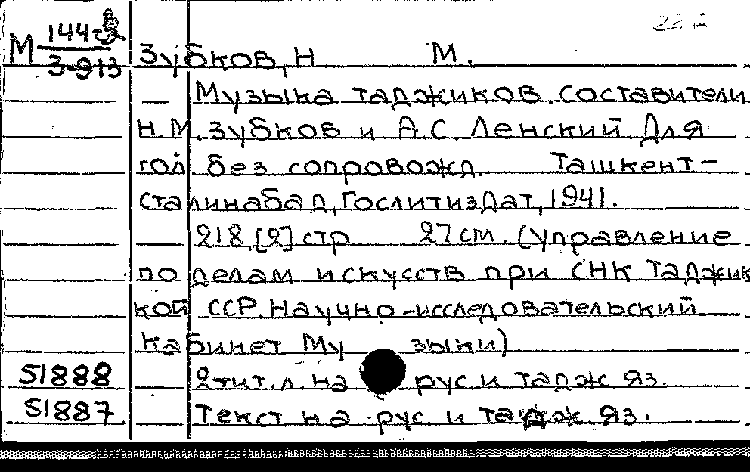 М 144-3
3-913
Зубков, Н М.
— Музыка таджиков. Составители
Н.М. Зубков и А.С. Ленский Для
гол без сопровожд. Ташкент-
Сталинабад, Гослитиздат, 1941.
218, [2] стр 27 см. (Управление
по делам искусств при СНК Таджик
кой ССР. Научно-исследовательский
кабинет Музыки)
51888 2 тит. л. на рус и тадж яз.
51887 Текст на рус и тадж яз.